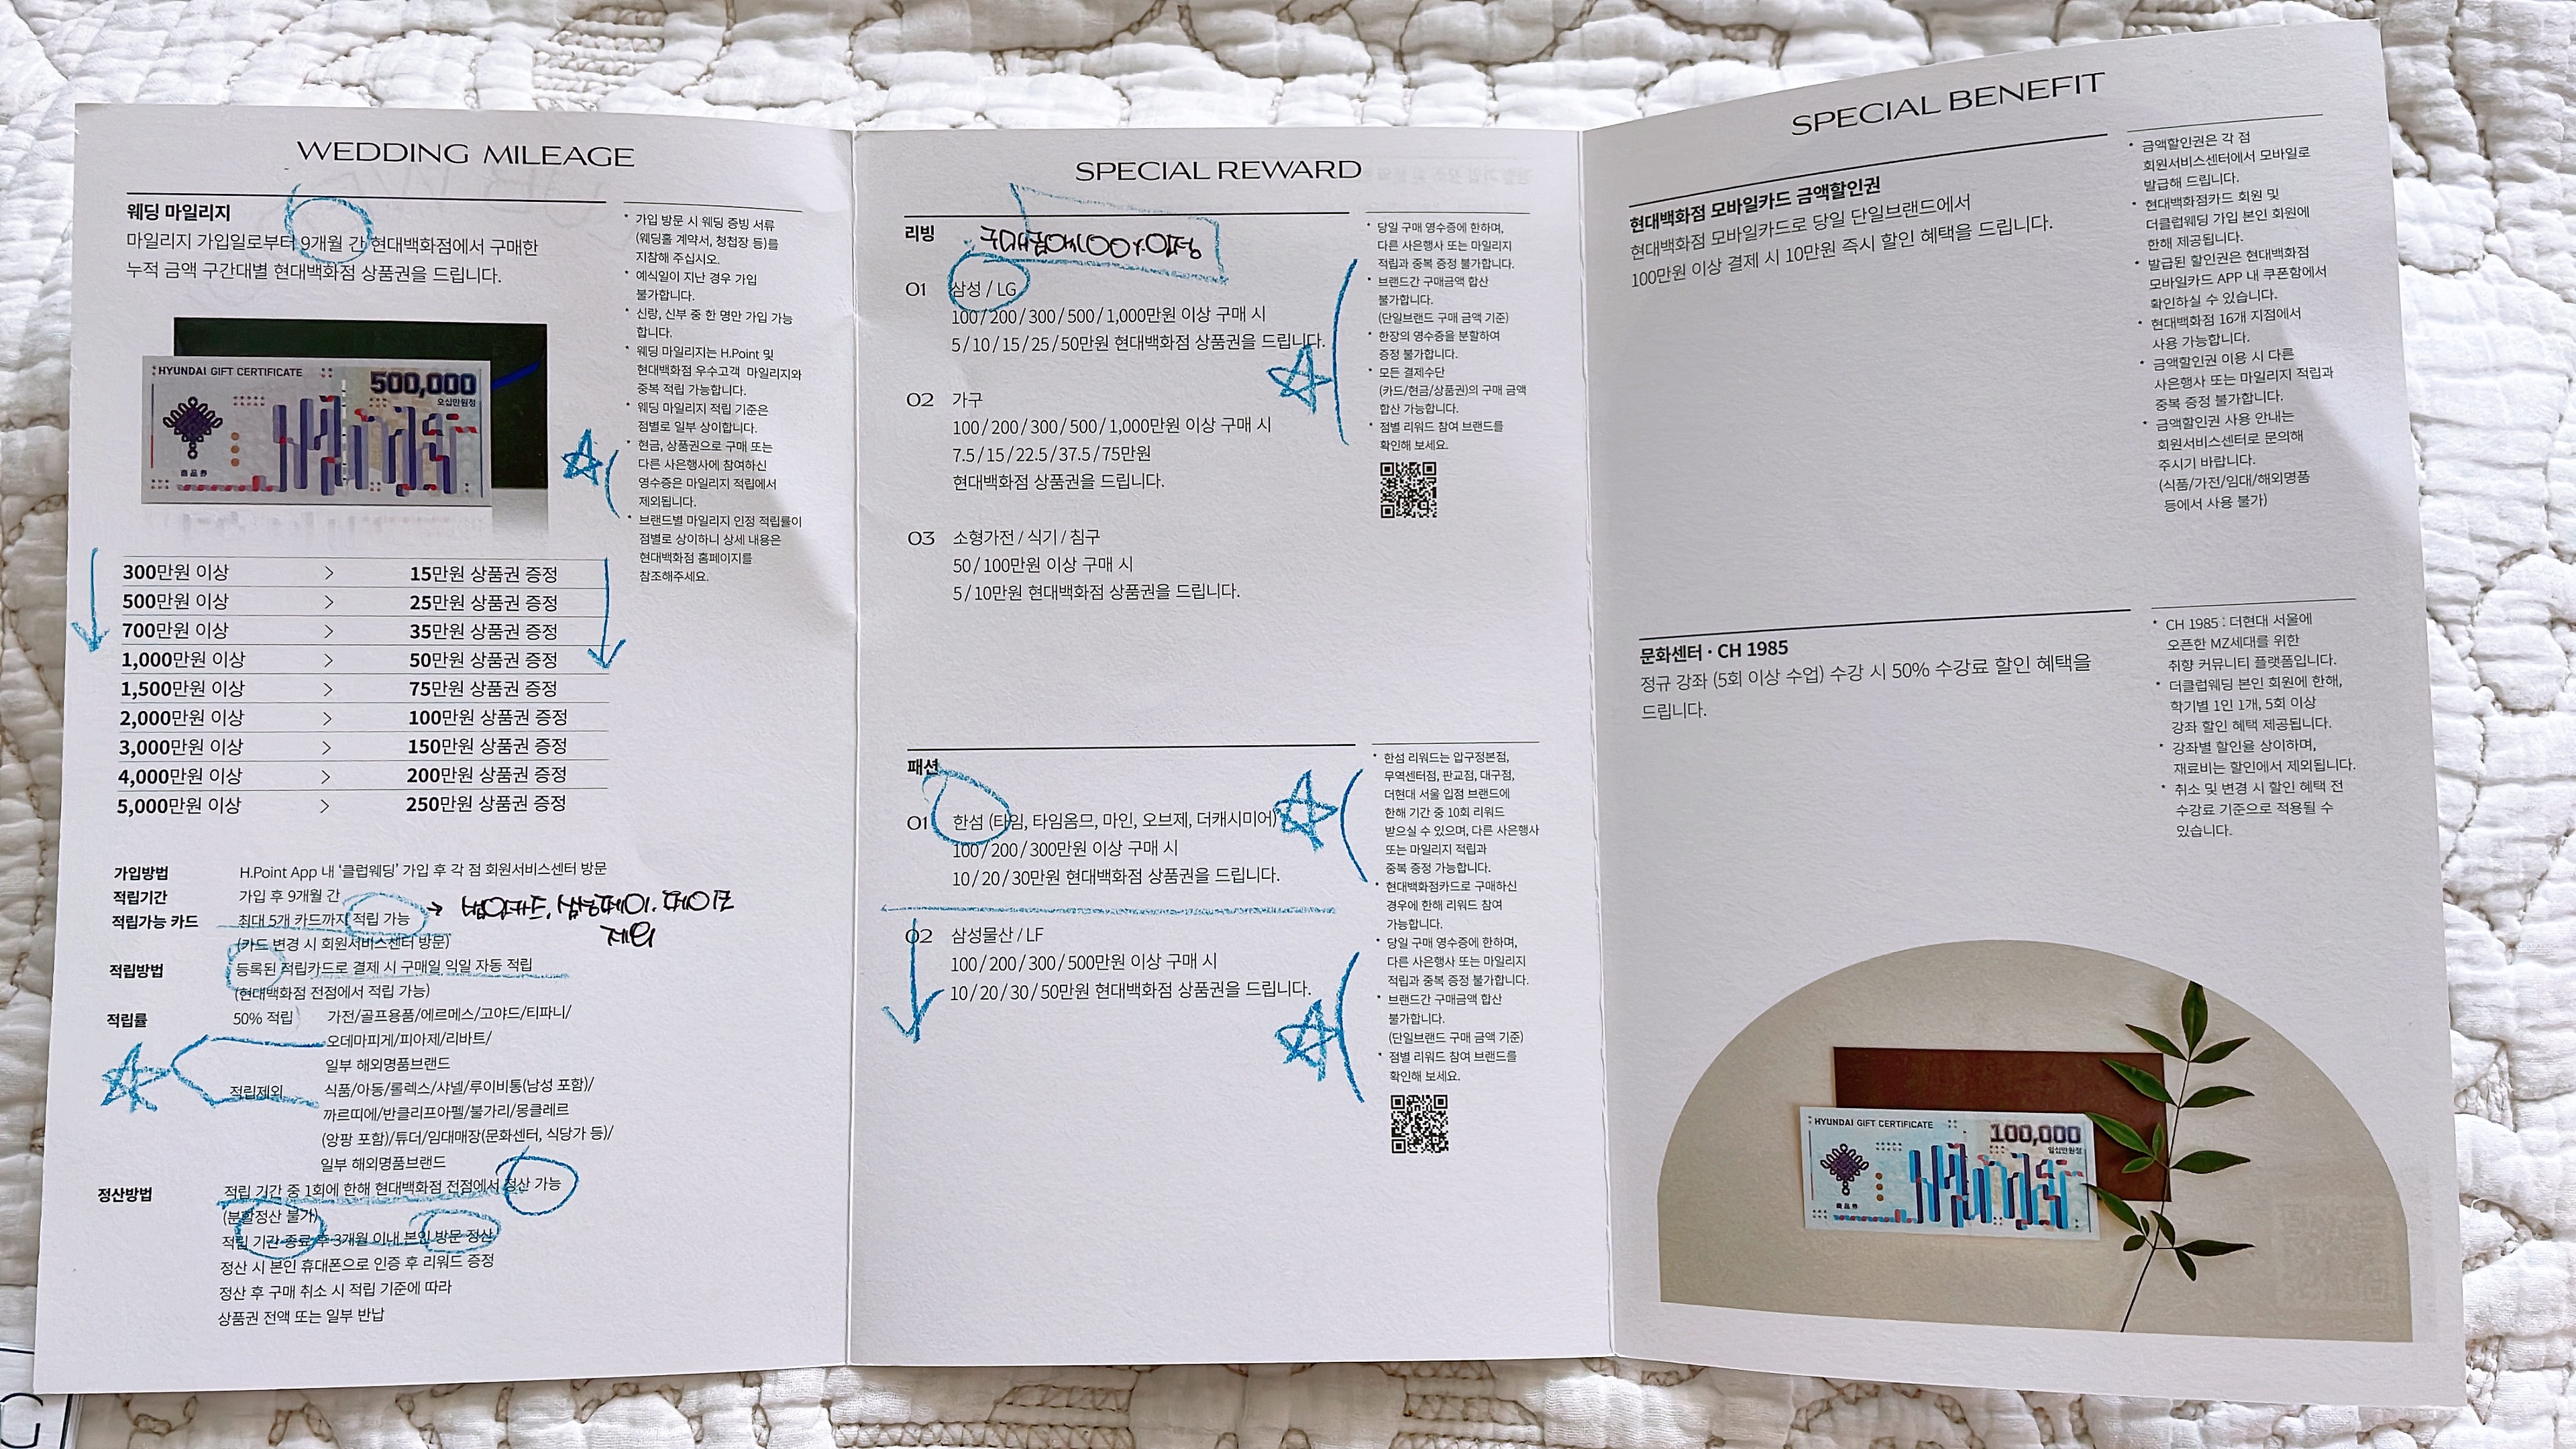 WEDDING MILEAGE
웨딩 마일리지
마일리지 가입일로부터 9개월 간 현대백화점에서 구매한
누적 금액 구간대별 현대백화점 상품권을 드립니다.
HYUNDAI GIFT CERTIFICATE
500,000
오십만원정
商品券
* 가입 방문 시 웨딩 증빙 서류
(웨딩홀 계약서, 청첩장 등)를
지참해 주십시오.
* 예식일이 지난 경우 가입
불가합니다.
* 신랑, 신부 중 한 명만 가입 가능
합니다.
* 웨딩 마일리지는 H.Point 및
현대백화점 우수고객 마일리지와
중복 적립 가능합니다.
* 웨딩 마일리지 적립 기준은
점별로 일부 상이합니다.
* 현금, 상품권으로 구매 또는
다른 사은행사에 참여하신
영수증은 마일리지 적립에서
제외됩니다.
* 브랜드별 마일리지 인정 적립률이
점별로 상이하니 상세 내용은
현대백화점 홈페이지를
참조해주세요.
300만원 이상 > 15만원 상품권 증정
500만원 이상 > 25만원 상품권 증정
700만원 이상 > 35만원 상품권 증정
1,000만원 이상 > 50만원 상품권 증정
1,500만원 이상 > 75만원 상품권 증정
2,000만원 이상 > 100만원 상품권 증정
3,000만원 이상 > 150만원 상품권 증정
4,000만원 이상 > 200만원 상품권 증정
5,000만원 이상 > 250만원 상품권 증정
가입방법 H.Point App 내 ‘클럽웨딩’ 가입 후 각 점 회원서비스센터 방문
적립기간 가입 후 9개월 간
적립가능 카드 최대 5개 카드까지 적립 가능 → 법인카드, 삼성페이, 페이코
제외
(카드 변경 시 회원서비스센터 방문)
적립방법 등록된 적립카드로 결제 시 구매일 익일 자동 적립
(현대백화점 전점에서 적립 가능)
적립률 50% 적립 가전/골프용품/에르메스/고야드/티파니/
오데마피게/피아제/리바트/
일부 해외명품브랜드
적립제외 식품/아동/롤렉스/샤넬/루이비통(남성 포함)/
까르띠에/반클리프아펠/불가리/몽클레르
(앙팡 포함)/튜더/임대매장(문화센터, 식당가 등)/
일부 해외명품브랜드
정산방법 적립 기간 중 1회에 한해 현대백화점 전점에서 정산 가능
(분할정산 불가)
적립 기간 종료 후 3개월 이내 본인 방문 정산
정산 시 본인 휴대폰으로 인증 후 리워드 증정
정산 후 구매 취소 시 적립 기준에 따라
상품권 전액 또는 일부 반납
SPECIAL REWARD
리빙
구매점에서 100% 인정
01 삼성 / LG
100 / 200 / 300 / 500 / 1,000만원 이상 구매 시
5 / 10 / 15 / 25 / 50만원 현대백화점 상품권을 드립니다.
02 가구
100 / 200 / 300 / 500 / 1,000만원 이상 구매 시
7.5 / 15 / 22.5 / 37.5 / 75만원
현대백화점 상품권을 드립니다.
03 소형가전 / 식기 / 침구
50 / 100만원 이상 구매 시
5 / 10만원 현대백화점 상품권을 드립니다.
* 당일 구매 영수증에 한하며,
다른 사은행사 또는 마일리지
적립과 중복 증정 불가합니다.
* 브랜드간 구매금액 합산
불가합니다.
(단일브랜드 구매 금액 기준)
* 한장의 영수증을 분할하여
증정 불가합니다.
* 모든 결제수단
(카드/현금/상품권)의 구매 금액
합산 가능합니다.
* 점별 리워드 참여 브랜드를
확인해 보세요.
패션
01 한섬 (타임, 타임옴므, 마인, 오브제, 더캐시미어)
100 / 200 / 300만원 이상 구매 시
10 / 20 / 30만원 현대백화점 상품권을 드립니다.
02 삼성물산 / LF
100 / 200 / 300 / 500만원 이상 구매 시
10 / 20 / 30 / 50만원 현대백화점 상품권을 드립니다.
* 한섬 리워드는 압구정본점,
무역센터점, 판교점, 대구점,
더현대 서울 입점 브랜드에
한해 기간 중 10회 리워드
받으실 수 있으며, 다른 사은행사
또는 마일리지 적립과
중복 증정 가능합니다.
* 현대백화점카드로 구매하신
경우에 한해 리워드 참여
가능합니다.
* 당일 구매 영수증에 한하며,
다른 사은행사 또는 마일리지
적립과 중복 증정 불가합니다.
* 브랜드간 구매금액 합산
불가합니다.
(단일브랜드 구매 금액 기준)
* 점별 리워드 참여 브랜드를
확인해 보세요.
SPECIAL BENEFIT
현대백화점 모바일카드 금액할인권
현대백화점 모바일카드로 당일 단일브랜드에서
100만원 이상 결제 시 10만원 즉시 할인 혜택을 드립니다.
* 금액할인권은 각 점
회원서비스센터에서 모바일로
발급해 드립니다.
* 현대백화점카드 회원 및
더클럽웨딩 가입 본인 회원에
한해 제공됩니다.
* 발급된 할인권은 현대백화점
모바일카드 APP 내 쿠폰함에서
확인하실 수 있습니다.
* 현대백화점 16개 지점에서
사용 가능합니다.
* 금액할인권 이용 시 다른
사은행사 또는 마일리지 적립과
중복 증정 불가합니다.
* 금액할인권 사용 안내는
회원서비스센터로 문의해
주시기 바랍니다.
(식품/가전/임대/해외명품
등에서 사용 불가)
문화센터 · CH 1985
정규 강좌 (5회 이상 수업) 수강 시 50% 수강료 할인 혜택을
드립니다.
* CH 1985 : 더현대 서울에
오픈한 MZ세대를 위한
취향 커뮤니티 플랫폼입니다.
* 더클럽웨딩 본인 회원에 한해,
학기별 1인 1개, 5회 이상
강좌 할인 혜택 제공됩니다.
* 강좌별 할인율 상이하며,
재료비는 할인에서 제외됩니다.
* 취소 및 변경 시 할인 혜택 전
수강료 기준으로 적용될 수
있습니다.
HYUNDAI GIFT CERTIFICATE
100,000
일십만원정
商品券
G